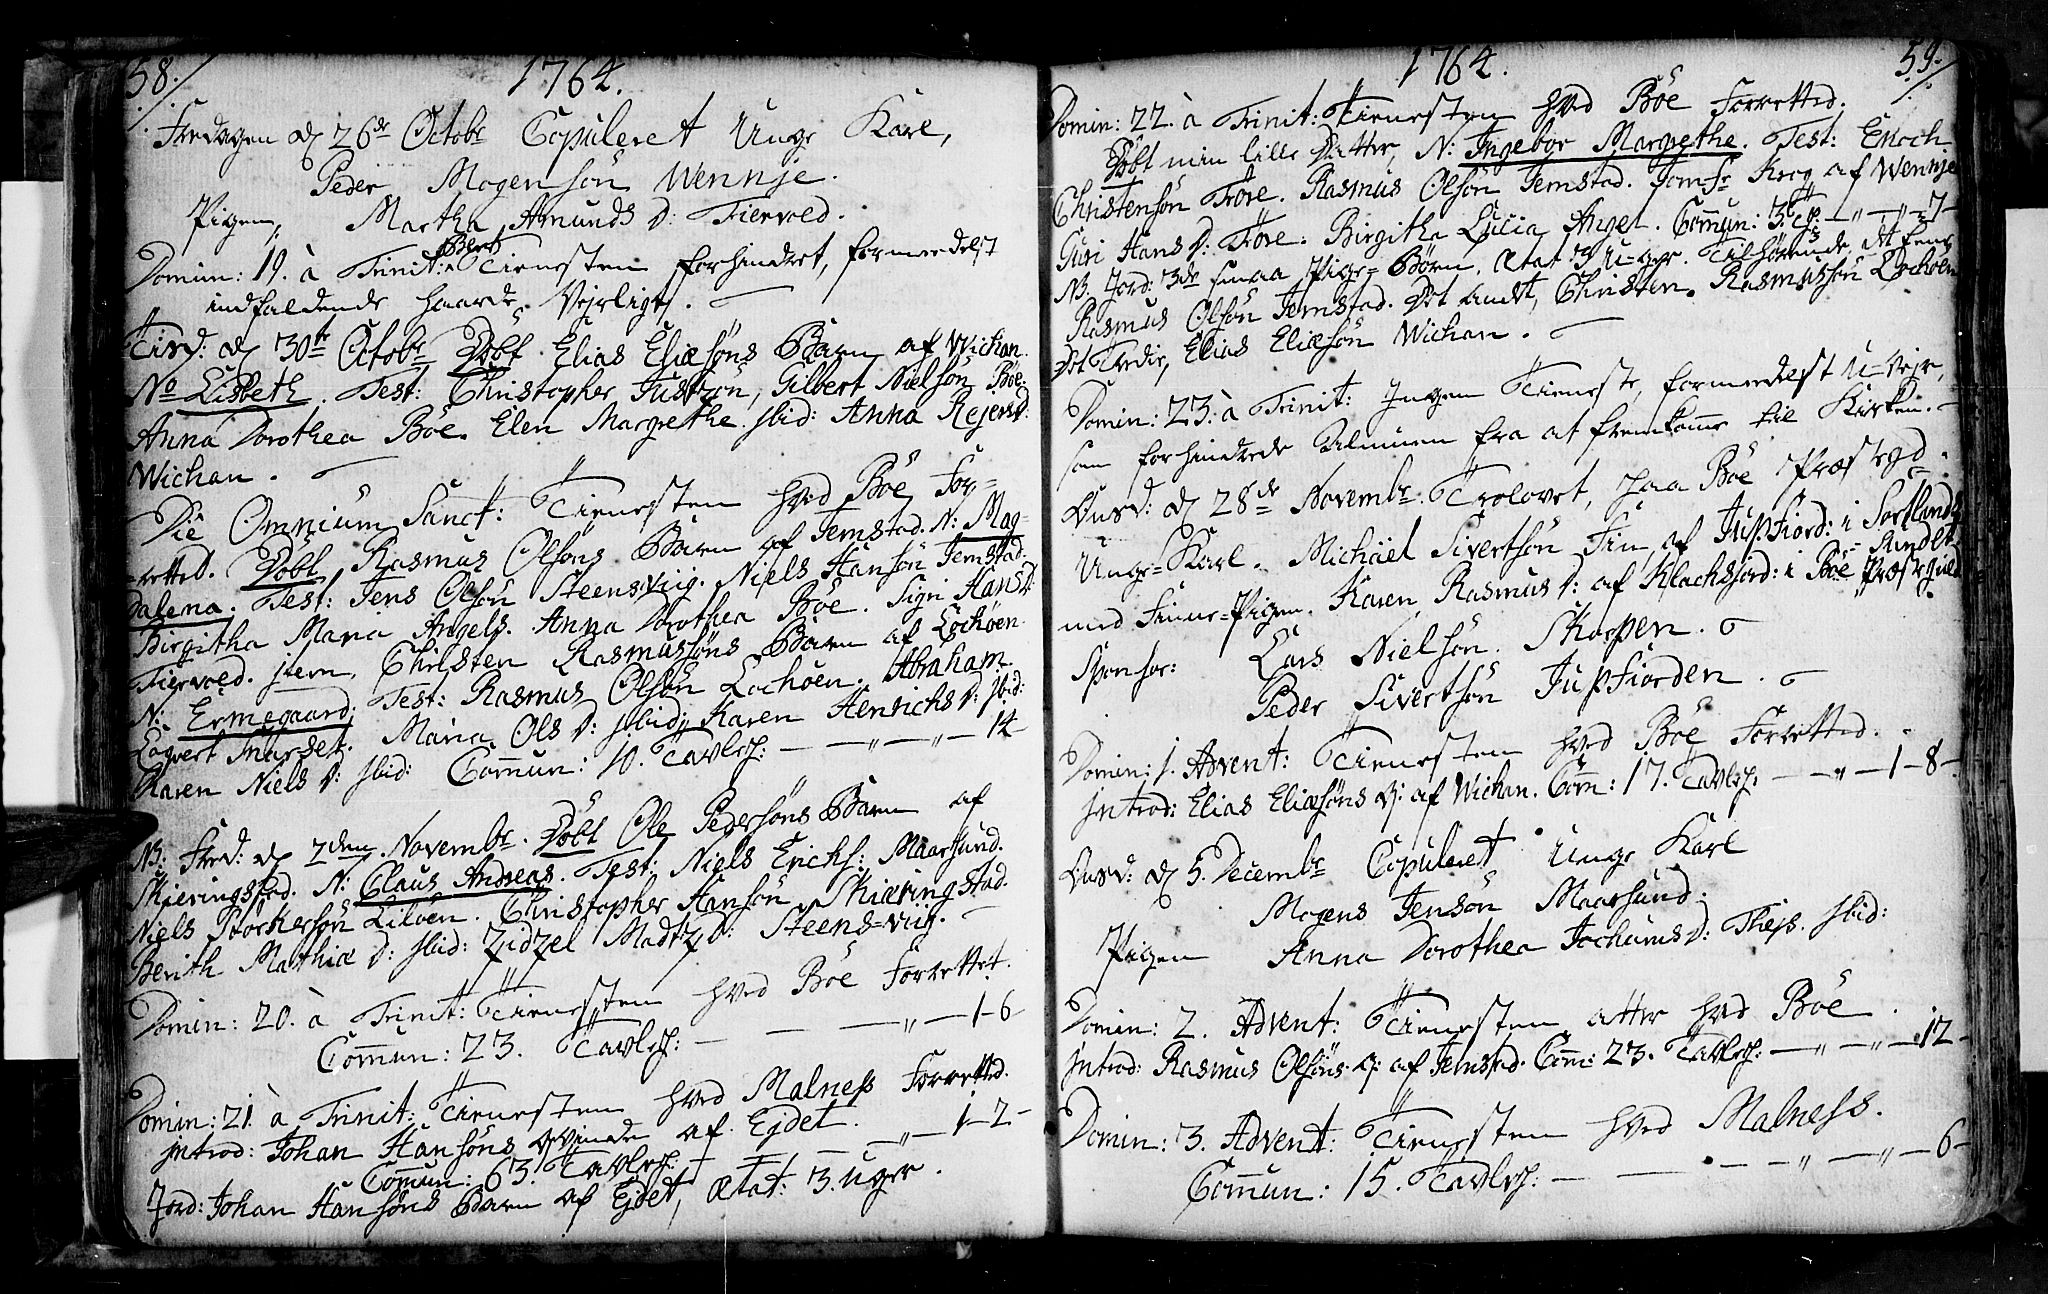 58.
1764.
Fredagen d 26de Octobr Copuleret Unge Karl,
Peder Mogensøn Wennje.
Pigen, Martha Amunds D: Fiervold.
Domin: 19. à Trinit: blef Tienesten forhindret, formedelst
indfaldende haarde Vejrliget.
Tirsd: d 30te Octobr Døbt Elias Eliæsøns Barn af Wichan.
No Lisbeth. Test: Christopher Justzøn, Gilbert Nielsøn Bøe.
Anna Dorothea Bøe. Elen Margrethe ibid: Anna Rejers D:
Wichan.
Die Omnium Sanct: Tienesten hved Bøe For-
retted. Døbt Rasmus Olsøns Barn af Jemstad. N: Mag-
dalena. Test: Jens Olsøn Steensviig. Niels Hansøn Jemstad.
Birgitha Maria Angels. Anna Dorothea Bøe. Sigri Hans D:
Fiervold. Item, Christen Rasmussøns Barn af Lochøen.
N: Ermegaard. Test: Rasmus Olsøn Lochøen. Abraham
Lagvert Marset. Maria Ols D: ibid: Karen Henrichs D: ibid:
Karen Niels D: ibid: Com̄un: 10. Tavlep: — — „ — „ — 14 —
NB: Fred: d 2den Novembr. Døbt Ole Pedersøns Barn af
Skjeringstad. N: Claus Andreas. Test: Niels Erichs: Maarsund.
Niels Tockersøn Liløen. Christopher Hansøn Skiæringstad.
Berith Mathiæ D: ibid: Zidzel Madtz D: Steens-viig.
Domin: 20. à Trinit: Tienesten hved Bøe Forrettet.
Com̄un: 23. Tavlep: — — — „ — 1 - 6 -
Domin: 21. à Trinit: Tienesten hved Malness Forretted.
Introd: Johan Hansøns Qvinde af Ejdet.
Com̄un: 63. Tavlep: — — — „ — 1 - 2 -
Jord: Johan Hansøns Barn af Ejdet, Ætat: 3. uger.
1764.
59.
Domin: 22. à Trinit: Tienesten hved Bøe Forretted.
Døbt min lille Datter, N: Ingebor Margrethe. Test: Enoch
Christensøn Føre. Rasmus Olsøn Jemstad. Jomfr Krog af Wennje
Guri Hans D: Føre. Birgitha Lucia Angel. Com̄un: 3. Tp: — „ — „ — 7 —
NB. Jord: 3de smaa Pige-Børn. Ætat 3 U-ger. Tilhørende, det Eene
Rasmus Olsøn Jemstad. Det Andet, Christen Rasmussøn Lochøen
Det Tredie, Elias Eliæsøn Wichan.
Domin: 23. à Trinit: Ingen Tieneste, formedelst U-Vejr,
som forhindrede Almuen fra at fremkomme til Kirken.
Onsd: d 28de Novembr. Trolovet, paa Bøe Præstegd:
Unge-Karl. Michael Sivertsøn Fin af Jupfiord: i Sortlands
med Finne-Pigen. Karen Rasmus D: af Klachsford: i Bøe Præstegield.
Sponsor: Lars Nielsøn Skorpen.
Peder Sivertsøn Jupfiorden.
Domin: 1. Advent: Tienesten hved Bøe Forretted.
Introd: Elias Eliæsøns Q: af Wichan. Com̄: 17. Tavlep: — — „ — 1 - 8 -
Onsd: d 5. Decembr Copuleret Unge Karl
Mogens Jensøn Maarsund.
Pigen Anna Dorothea Jochums D: Theps. ibid:
Domin: 2. Advent: Tienesten atter hved Bøe.
Introd: Rasmus Olsøns Q: af Jemstad. Com̄: 23. Tavlep: — „ — „ — 12 —
Domin: 3. Advent: Tienesten hved Malness.
Com̄un: 15. Tavlep: — — — „ — „ — 6 —